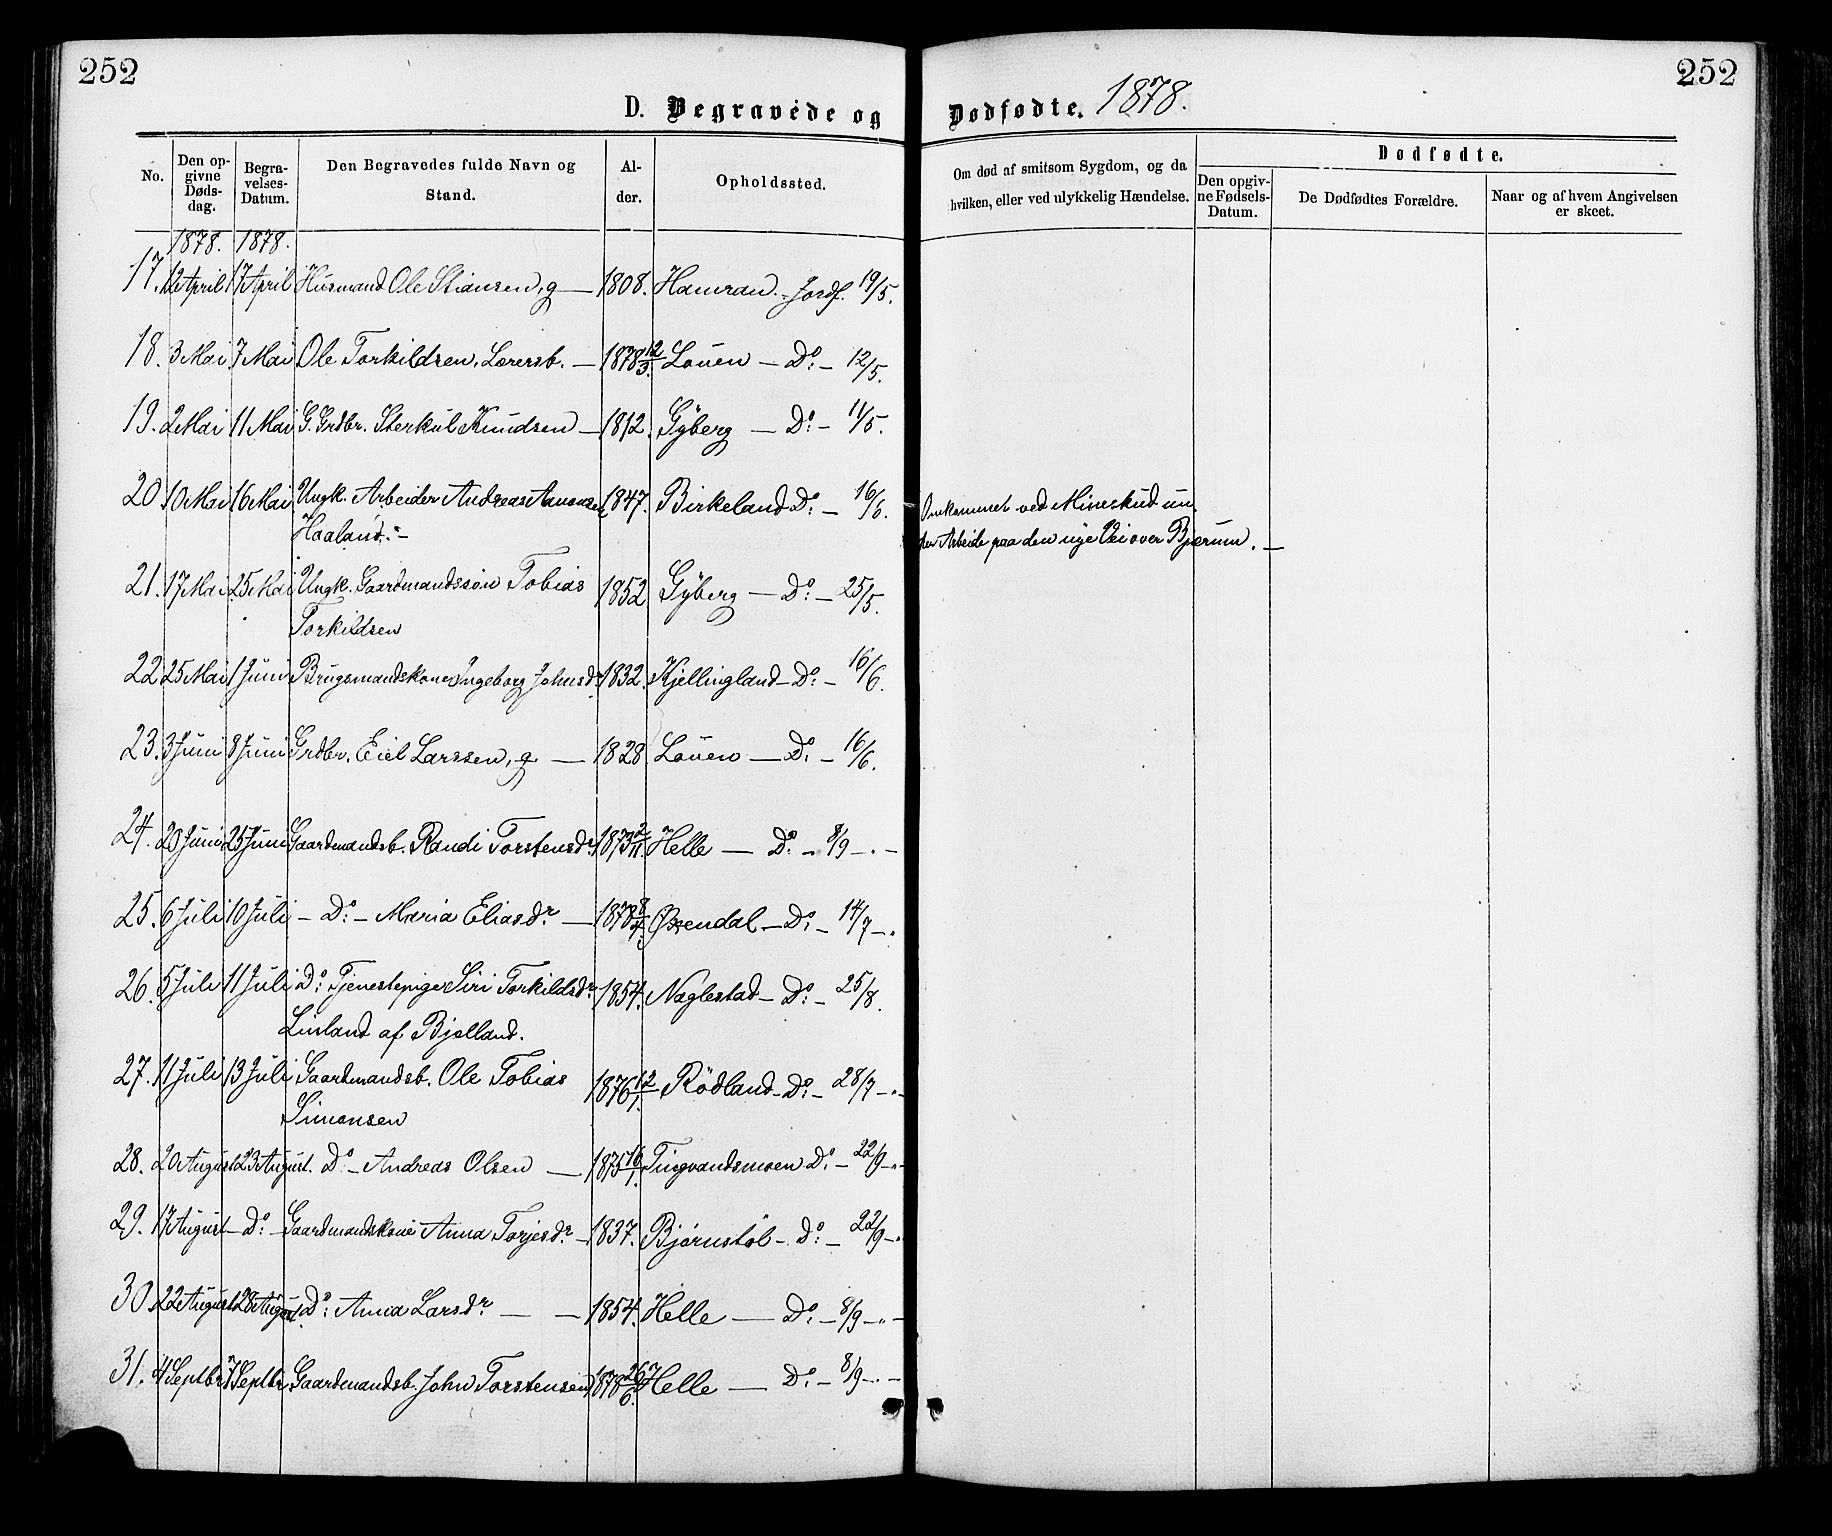 252
252
D. Begravede og Dødfødte. 1878.
No.
Den opgivne Dødsdag.
Begravelses-Datum.
Den Begravedes fulde Navn og Stand.
Alder.
Opholdssted.
Om død af smitsom Sygdom, og da hvilken, eller ved ulykkelig Hændelse.
Dødfødte.
Den opgivne Fødsels-Datum.
De Dødfødtes Forældre.
Naar og af hvem Angivelsen er skeet.
1878. 1878.
17. 12 April 17 April Husmand Ole Stiansen, g — 1808. Hamran. - Jordf. 19/5.
18. 3 Mai 7 Mai Ole Torkildsen, Lærersb. — 1878 12/3. Louen — Do: — 12/5.
19. 2 Mai 11 Mai G. Grdbr. Sterkul Knudsen — 1812. Gyberg — Do: — 11/5.
20. 10 Mai 16 Mai Ungk. Arbeider Andreas Aanensen 1847. Birkeland Do: — 16/6. Omkommet ved Mineskud un
Haaland. — der Arbeide paa den nye Vei over Bjærum. —
21. 17 Mai 25 Mai Ungk. Gaardmandssøn Tobias 1852 Gyberg — Do: — 25/5.
Torkildsen
22. 25 Mai 1 Juni Brugsmandskone Ingeborg Johnsdr. 1832. Kjellingland — Do: — 16/6.
23. 3 Juni 8 Juni Grdbr. Eiel Larssen, g — 1828 Louen — Do: — 16/6.
24. 20 Juni 25 Juni Gaardmandsb. Randi Torstensdr. 1873 2/11. Helle — Do: — 8/9 —
25. 6 Juli 10 Juli — Do: — Maria Eliasdr. — 1878 8/4. Øxendal — Do: — 14/7 —
26. 5 Juli 11 Juli Do: Tjenestepige Siri Torkildsdr. 1854. Naglestad — Do: — 25/8.
Linland af Bjelland.
27. 11 Juli 13 Juli Gaardmandsb. Ole Tobias 1876 12/1. Rödland — Do: — 28/7 —
Simonsen
28. 20 August 23 August. Do — Andreas Olsen — 1875 16/1. Tingvandsmoen Do: — 22/9 —
29. 17 August — Do: — Gaardmandskone Anna Torjesdr. — 1837. Bjørnstøl — Do: — 22/9 —
30. 22 August 28 August Do: Anna Larsdr. — — 1854. Helle — Do: — 8/9 —
31. 4 Septbr 7 Septbr Gaardmandsb. John Torstensen 1878 26/6. Helle — Do: — 8/9 —